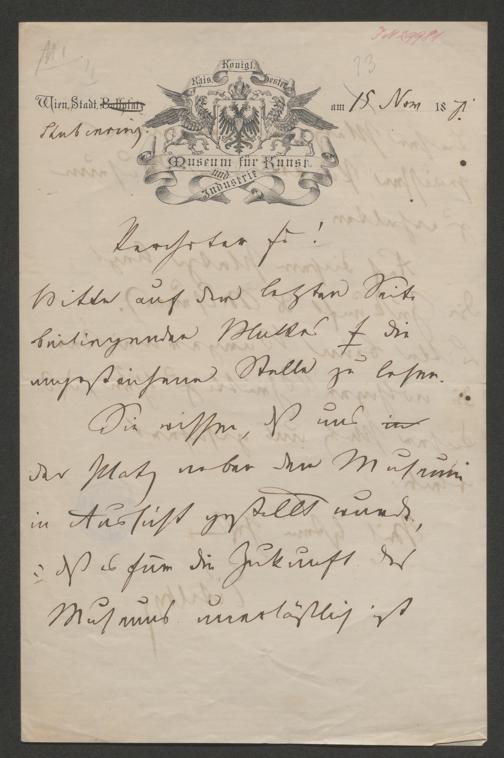 J N 29981
13
Königl.
Kais. Oesterr.
Wien, Stadt, Ballplatz am 15 Nov 1871
Stubenring.
Museum für Kunst
und
Industrie
Verehrter Fr!
Bitte auf der letzten Seite
beiliegenden Blattes ‡ die
angestrichene Stelle zu lesen.
Sie wissen, dß uns in
der Platz neben dem Museum
in Aussicht gestellt wurde,
dß es für die Zukunft des
Museums unerläßlich ist